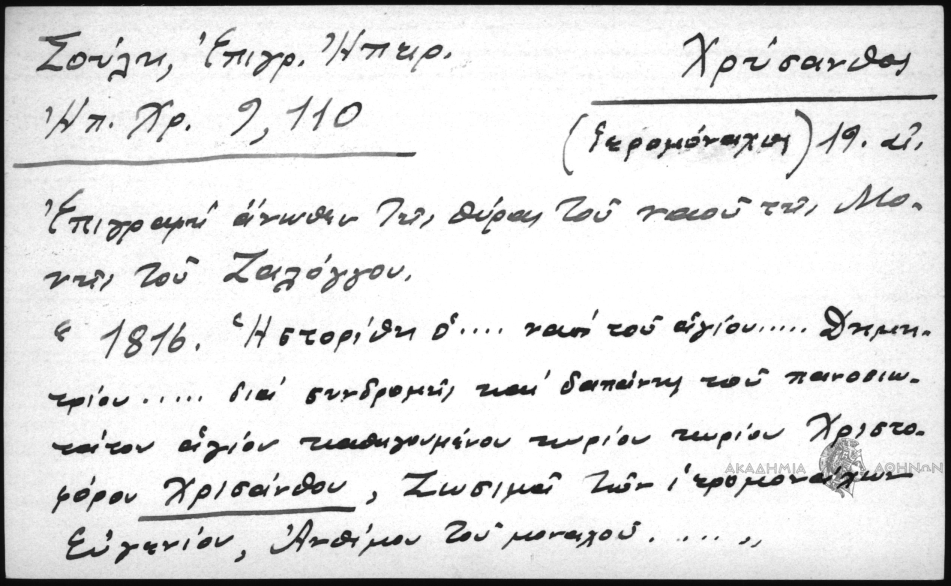 Σούλη, Ἐπιγρ. Ἠπειρ.
Χρύσανθος
Ἠπ. Χρ. 9, 110
(ἱερομόναχος) 19. αἰ.
Ἐπιγραφὴ ἄνωθεν τῆς θύρας τοῦ ναοῦ τῆς Μο-
νῆς τοῦ Ζαλόγγου.
“ 1816. Ἡστορίθη ὁ .... ναὸς τοῦ ἁγίου ..... Δημη-
τρίου ..... διὰ συνδρομῆς καὶ δαπάνης τοῦ πανοσιω-
τάτου ἁγίου καθηγουμένου κυρίου κυρίου Χριστο-
φόρου Χρισάνθου, Ζωσιμᾶ τῶν ἱερομονάχων
Εὐγενίου, Ἀνθίμου τοῦ μοναχοῦ. .... „
ΑΚΑΔΗΜΙΑ ΑΘΗΝΩΝ